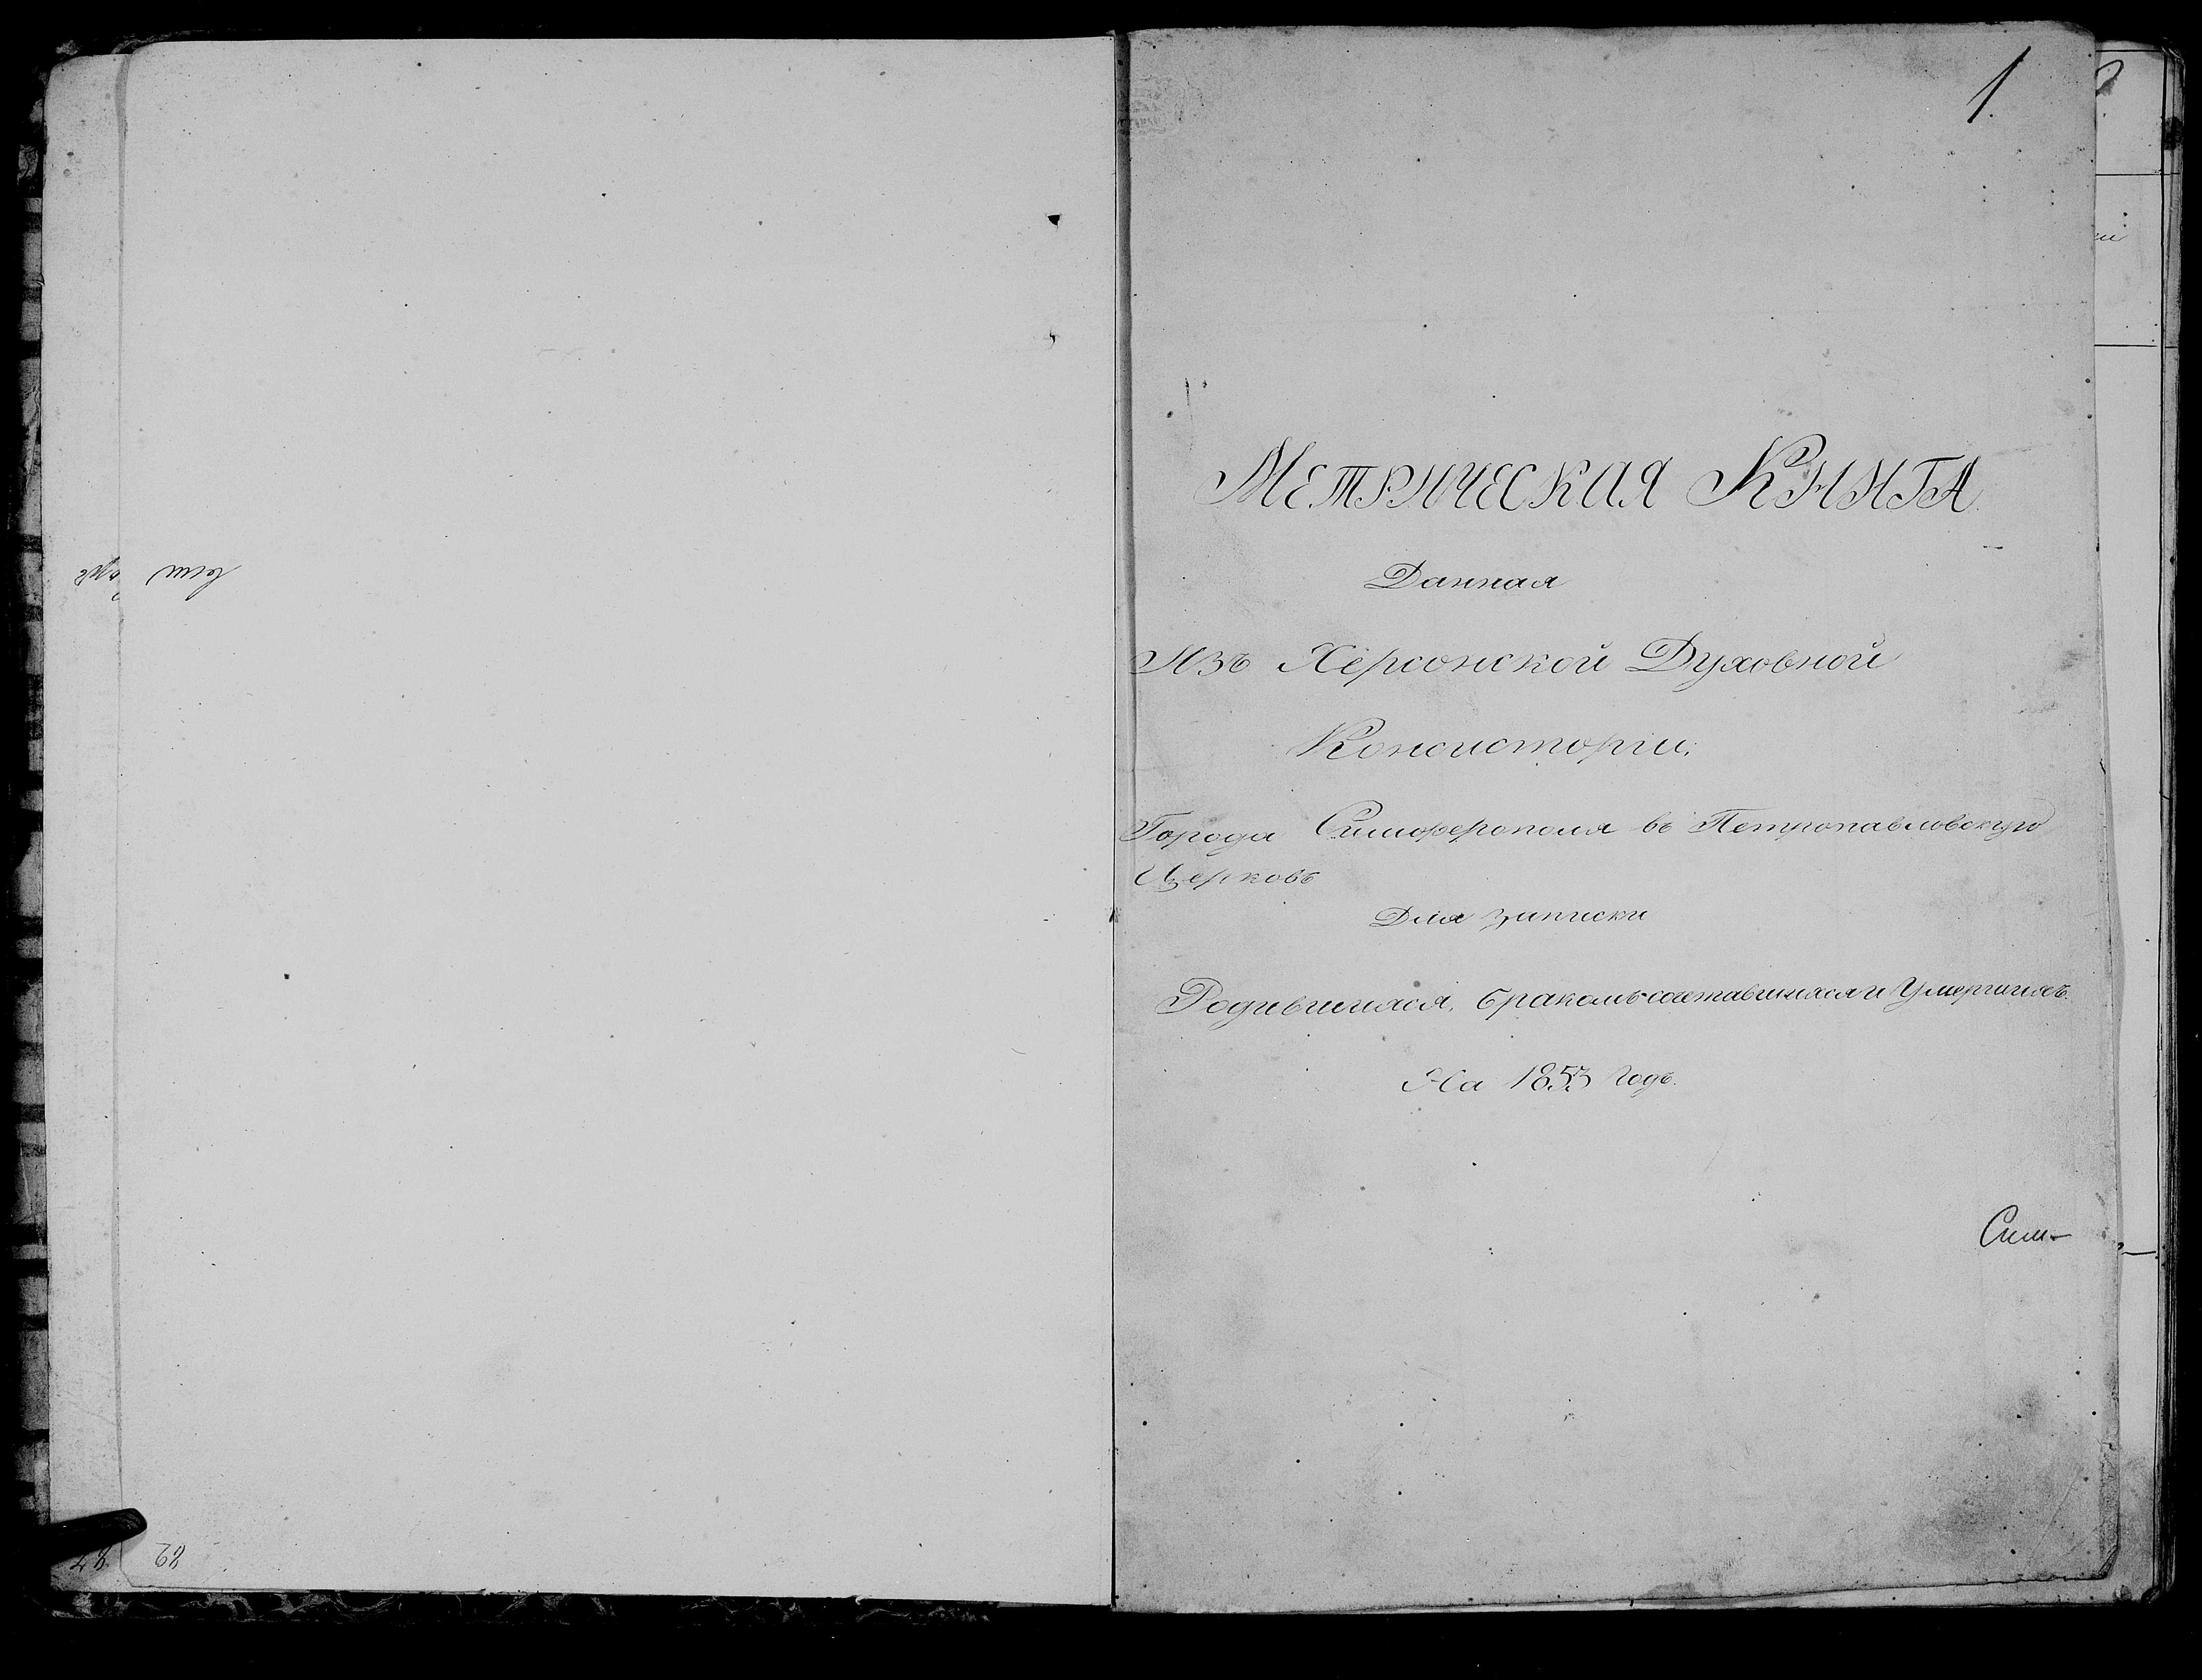 1.
МЕТРИЧЕСКАЯ КНИГА.
Данная
Изъ Херсонской Духовной
Консисторіи;
Города Симферополя въ Петропавловскую
Церковь
Для записки
Родившихся, бракомъ сочетавшихся и Умершихъ.
На 1853 годъ.
Сим-